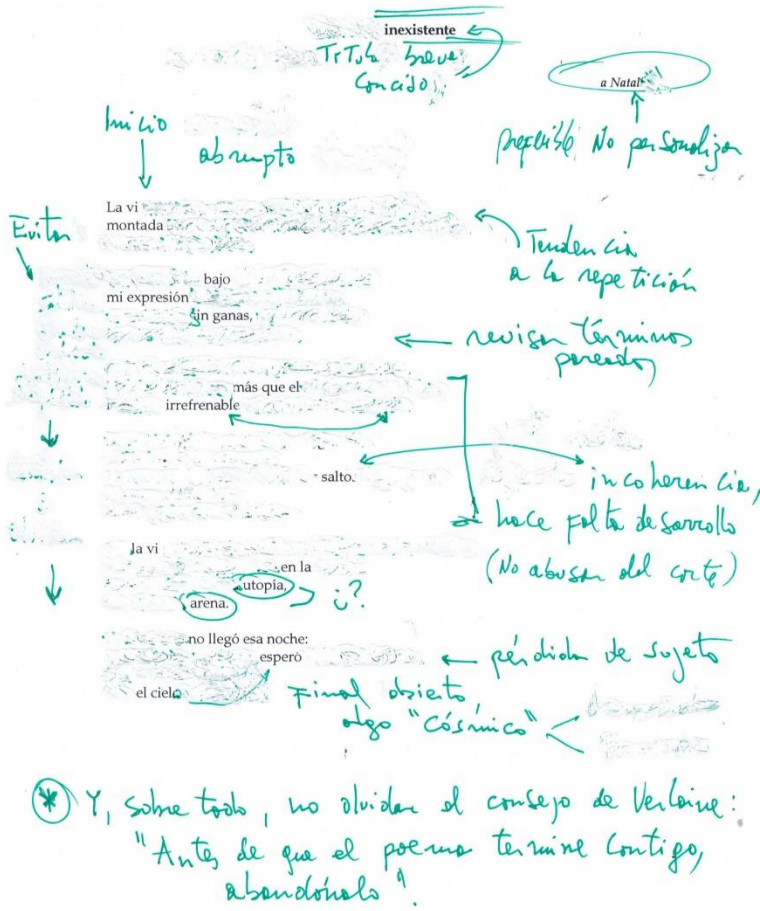 inexistente
Título breve,
conciso.
a Natal
Inicio
abrupto
preferible No personalizar
La vi
montada
Evitar
Tendencia
a la repetición
bajo
mi expresión
sin ganas,
revisar términos
pareados
más que el
irrefrenable
salto.
incoherencia,
hace falta desarrollo
(No abusar del corte)
la vi
en la
utopía,
arena.
¿?
no llegó esa noche:
esperó
pérdida de sujeto
el cielo
Final abierto,
algo "Cósmico"
* Y, sobre todo, no olvidar el consejo de Verlaine:
"Antes de que el poema termine contigo,
abandónalo".